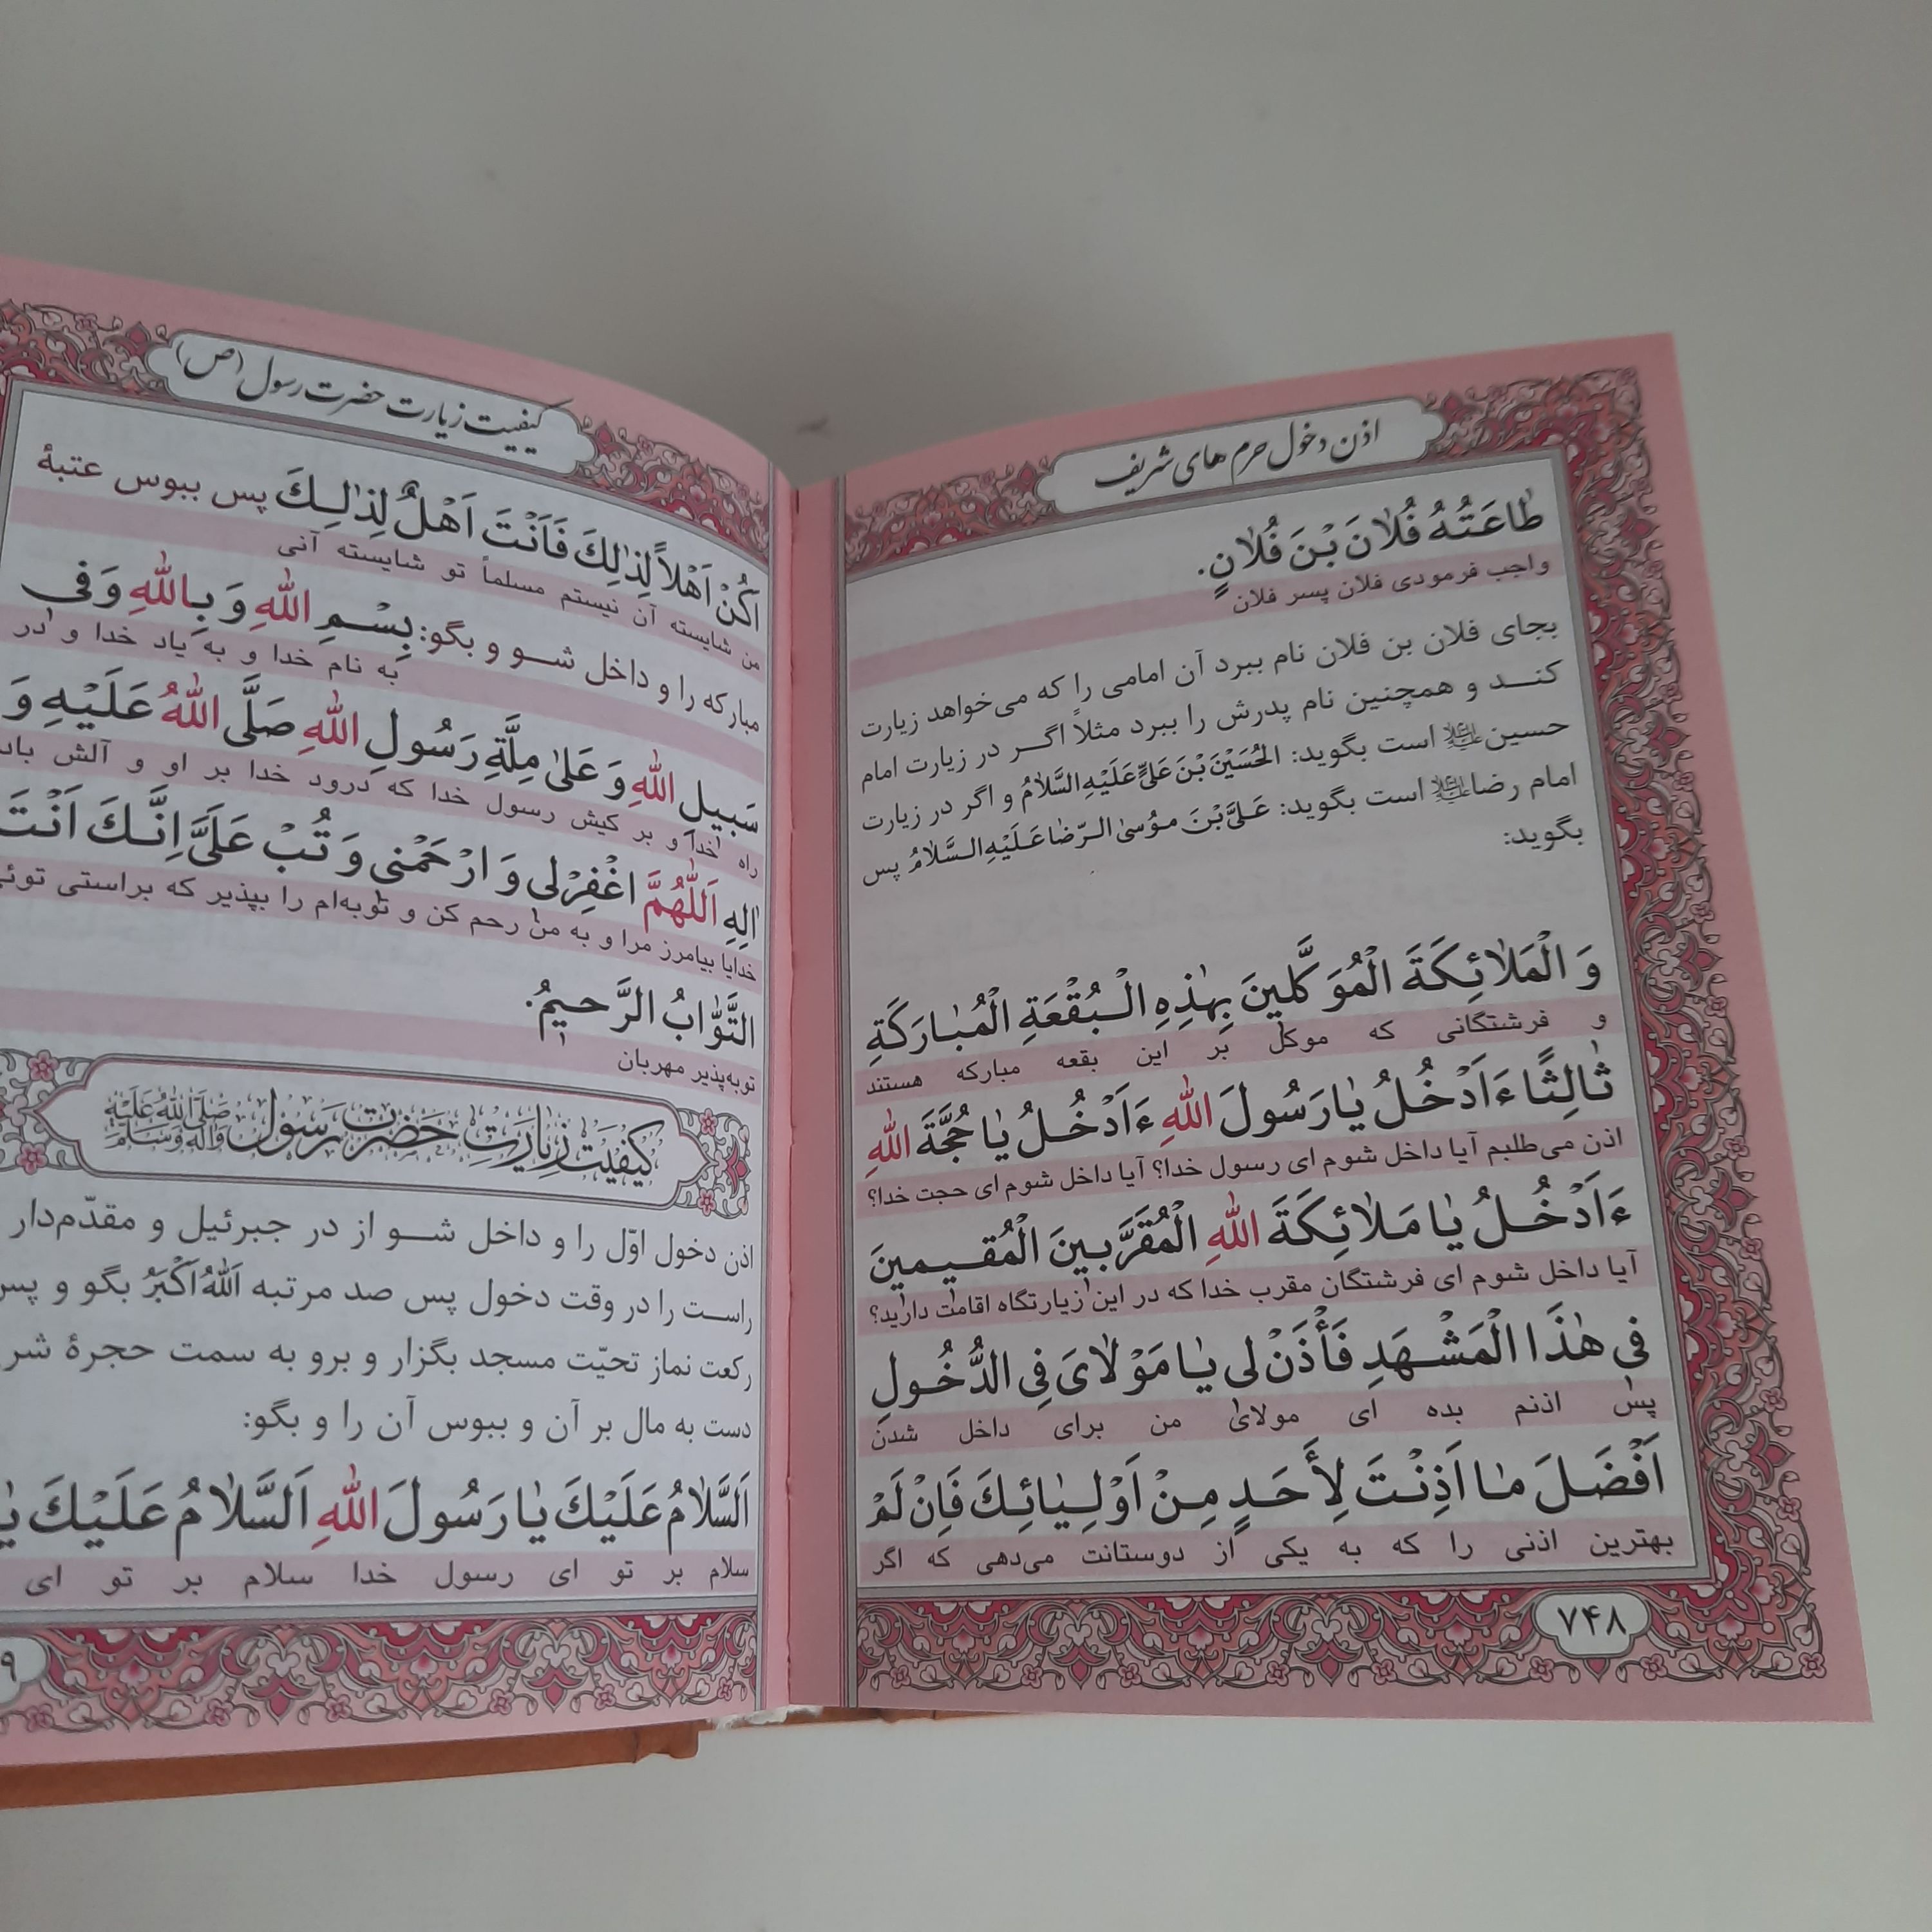 اذن دخول حرم های شریف
طاعَتُهُ فُلانَ بْنَ فُلانٍ.
واجب فرمودی فلان پسر فلان
بجای فلان بن فلان نام ببرد آن امامی را که می‌خواهد زیارت
کند و همچنین نام پدرش را ببرد مثلاً اگر در زیارت امام
حسین علیه‌السلام است بگوید: الْحُسَيْنَ بْنَ عَلِىٍّ عَلَيْهِ السَّلامُ و اگر در زیارت
امام رضا علیه‌السلام است بگوید: عَلِىَّ بْنَ مؤُسىَ الرِّضا عَلَيْهِ السَّلامُ پس
بگوید:
وَ الْمَلائِكَةَ الْمُوَكَّلينَ بِهٰذِهِ الْبُقْعَةِ الْمُبارَكَةِ
و فرشتگانی که موکل بر این بقعه مبارکه هستند
ثالِثًا ءَاَدْخُلُ يا رَسُولَ اللهِ ءَاَدْخُلُ يا حُجَّةَ اللهِ
اذن می‌طلبم آیا داخل شوم ای رسول خدا؟ آیا داخل شوم ای حجت خدا؟
ءَاَدْخُلُ يا مَلائِكَةَ اللهِ الْمُقَرَّبينَ الْمُقيمينَ
آیا داخل شوم ای فرشتگان مقرب خدا که در این زیارتگاه اقامت دارید؟
فى هٰذَا الْمَشْهَدِ فَأْذَنْ لى يا مَوْلاىَ فِى الدُّخُولِ
پس اذنم بده ای مولای من برای داخل شدن
اَفْضَلَ ما اَذِنْتَ لِأَحَدٍ مِنْ اَوْلِيائِكَ فَاِنْ لَمْ
بهترین اذنی را که به یکی از دوستانت می‌دهی که اگر
۷۴۸
کیفیت زیارت حضرت رسول (ص)
اَكُنْ اَهْلاً لِذٰلِكَ فَاَنْتَ اَهْلٌ لِذٰلِكَ پس ببوس عتبهٔ
من شایسته آن نیستم مسلماً تو شایسته آنی
مبارکه را و داخل شو و بگو: بِسْمِ اللهِ وَ بِاللهِ وَ فى
به نام خدا و به یاد خدا و در
سَبيلِ اللهِ وَ عَلىٰ مِلَّةِ رَسُولِ اللهِ صَلَّى اللهُ عَلَيْهِ وَ
راه خدا و بر کیش رسول خدا که درود خدا بر او و آلش باد
الِهِ اَللّٰهُمَّ اغْفِرْلى وَ ارْحَمْنى وَ تُبْ عَلَىَّ اِنَّكَ اَنْتَ
خدایا بیامرز مرا و به من رحم کن و توبه‌ام را بپذیر که براستی توئی
التَّوّابُ الرَّحيمُ.
توبه‌پذیر مهربان
کیفیت زیارت حضرت رسول صَلَّى اللهُ عَلَيْهِ وَ آلِهِ وَ سَلَّم
اذن دخول اوّل را و داخل شو از در جبرئیل و مقدّم‌دار
راست را در وقت دخول پس صد مرتبه اَللهُ اَكْبَرُ بگو و پس
رکعت نماز تحیّت مسجد بگزار و برو به سمت حجرهٔ شر
دست به مال بر آن و ببوس آن را و بگو:
اَلسَّلامُ عَلَيْكَ يا رَسُولَ اللهِ اَلسَّلامُ عَلَيْكَ يا
سلام بر تو ای رسول خدا سلام بر تو ای
۹